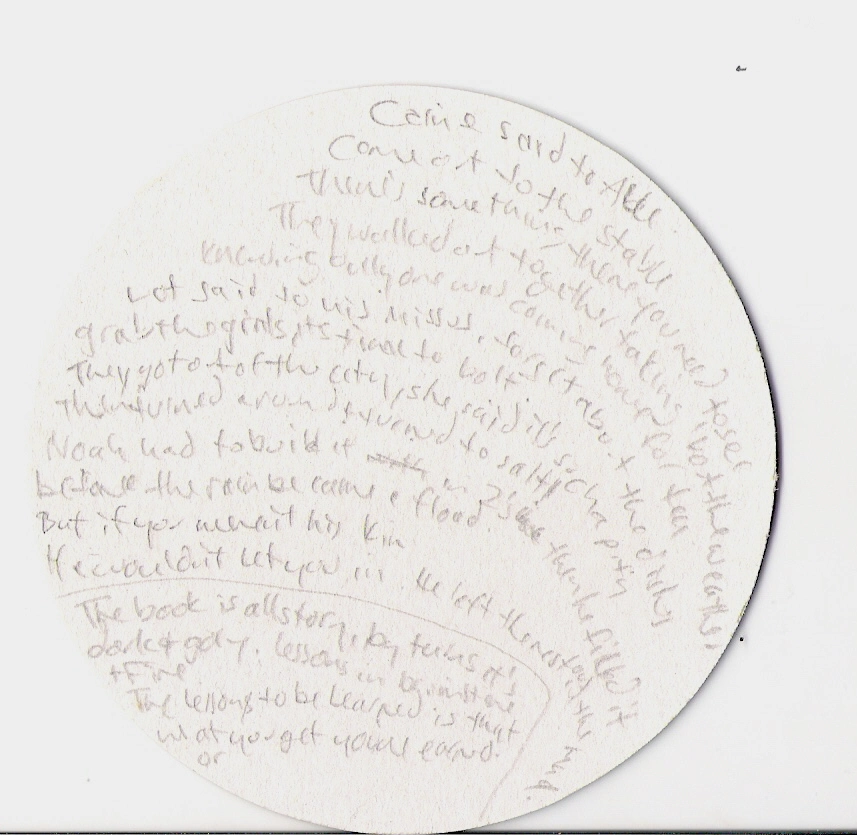 Caine said to Able
Come out to the stable
There's something there you need to see
They walked out together talking about the weather
knowing only one was coming home for tea
Lot said to his missus, forget about the dishes
grab the girls, its time to bolt
They got out of the city, she said it's such a pity
Then turned around & turned to salt
Noah had to build it in 2's then he filled it
before the rain became a flood.
But if you weren't his kin
He wouldn't let you in. He left the rest of us in the mud.
The book is all story, by turns it's
dark & gory. lessons in brimstone
& Fire
The lessons to be learned is that
what you get you've earned.
or